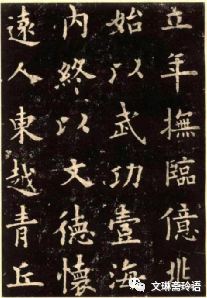 立年撫臨億兆
始以武功壹海
内終以文德懷
遠人東越青丘
文琳斋玲语